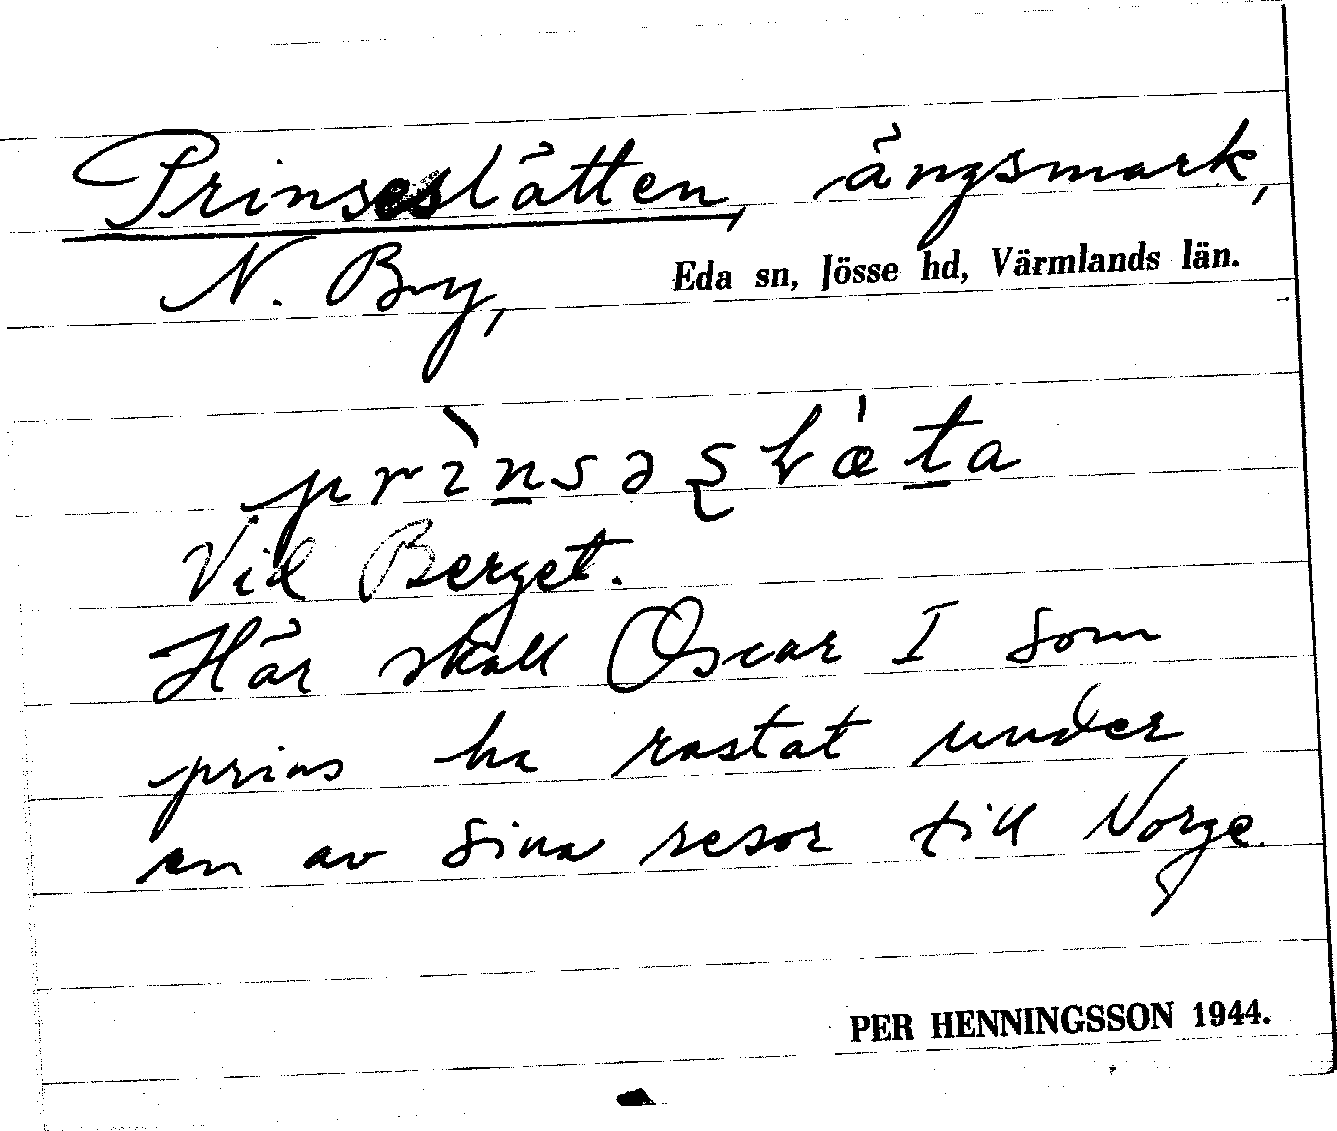 Prinseslätten, ängsmark,
N. By, Eda sn, Jösse hd, Värmlands län.
prìn̲səʂɫæ̍t̲a
Vid Berget.
Här skall Oscar I som
prins ha rastat under
en av sina resor till Norge.
PER HENNINGSSON 1944.